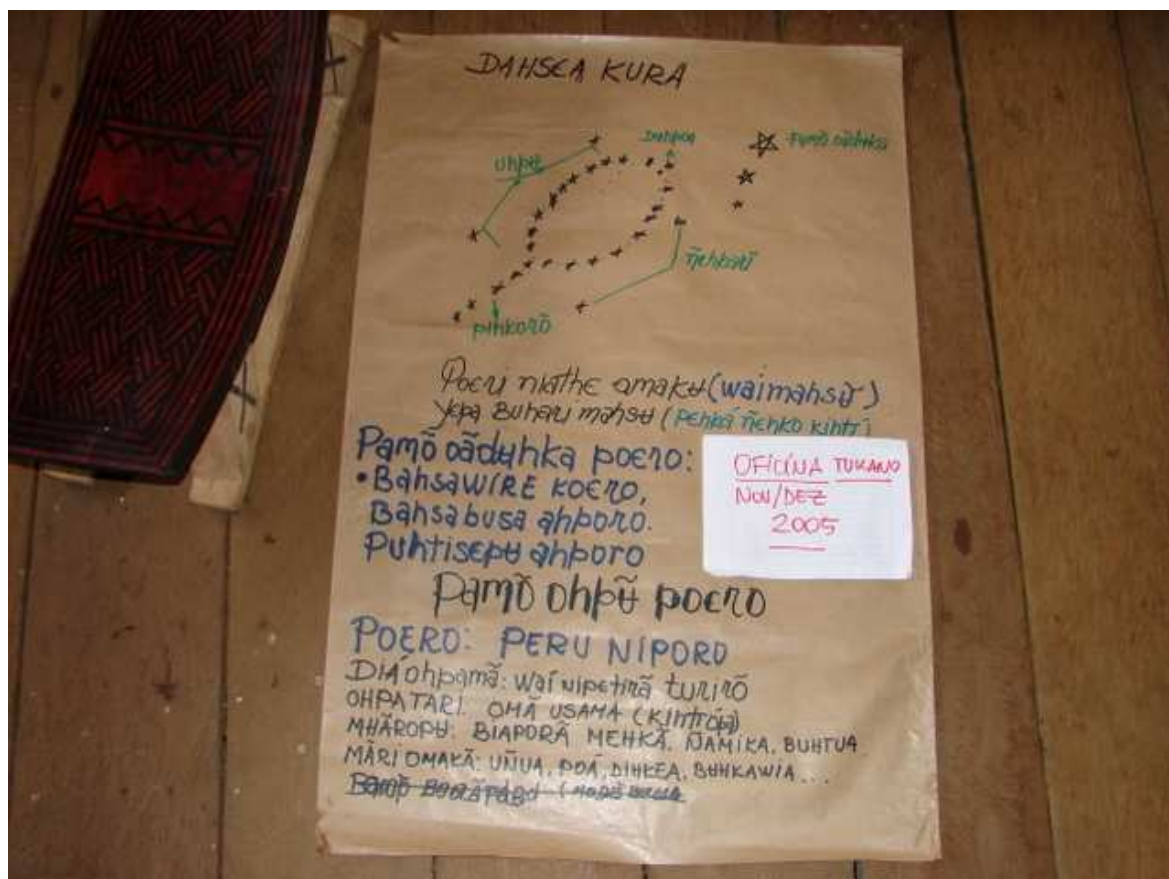 DAHSEA KURA
uhpʉ
Duhpoa
Pamõ oãduhka
ñehkarĩ
pihkorõ
Poeri nikathe omakʉ (waimahsʉ̃)
Yepa Buhari mahsʉ (pehká ñehko kihtí)
Pamõ oãdʉhka poero:
•Bahsawire koero,
Bahsabusa ahporo.
Puhtisepʉ ahporo
Pamõ ohpʉ̃ poero
POERO: PERU NIPORO
DIÁ ohpamã: wai nipetirã turirõ
OHPATARI. OMÃ USAMA (kihtróp)
MHÃROPʉ: BIAPORÃ MEHKÃ, ÑAMIKA, BUHTUA
MÃRI OMAKÃ: UÑUA, POÁ, DIHKEA, BʉHKAWIA...
OFICINA TUKANO
NOV/DEZ
2005